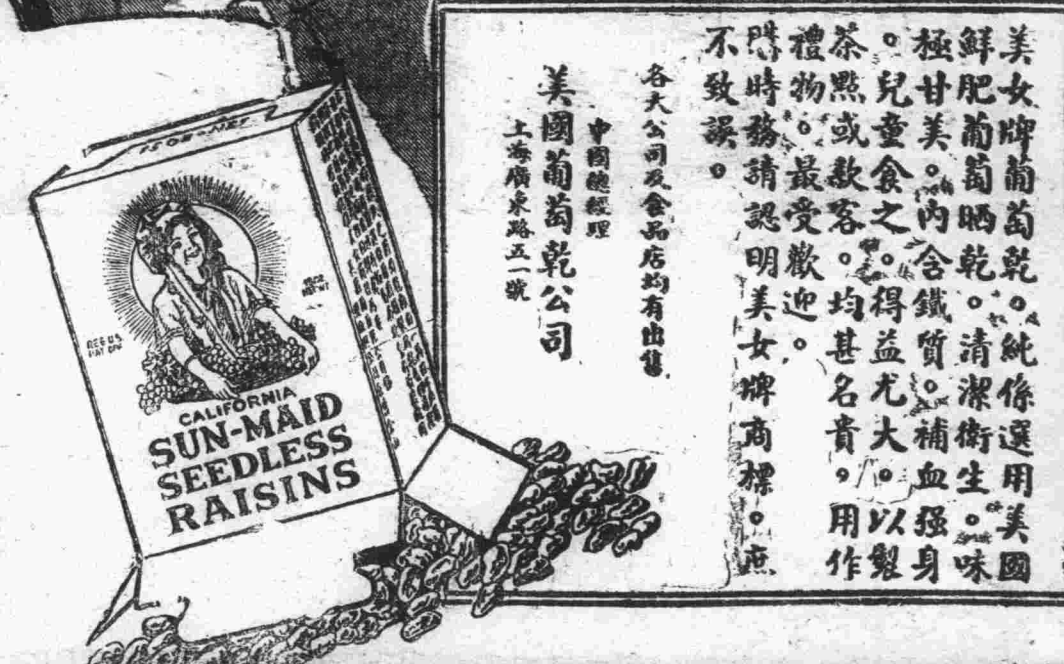 美女牌葡萄乾。純係選用美國
鮮肥葡萄晒乾。清潔衛生。味
極甘美。內含鐵質。補血强身
。兒童食之。得益尤大。以製
茶點或款客。均甚名貴。用作
禮物。最受歡迎。
購時務請認明美女牌商標。庶
不致誤。
各大公司及食品店均有出售
中國總經理
美國葡萄乾公司
上海廣東路五一號
15 OZ-NET
REG U.S.
PAT OFF
CALIFORNIA
SUN-MAID
SEEDLESS
RAISINS